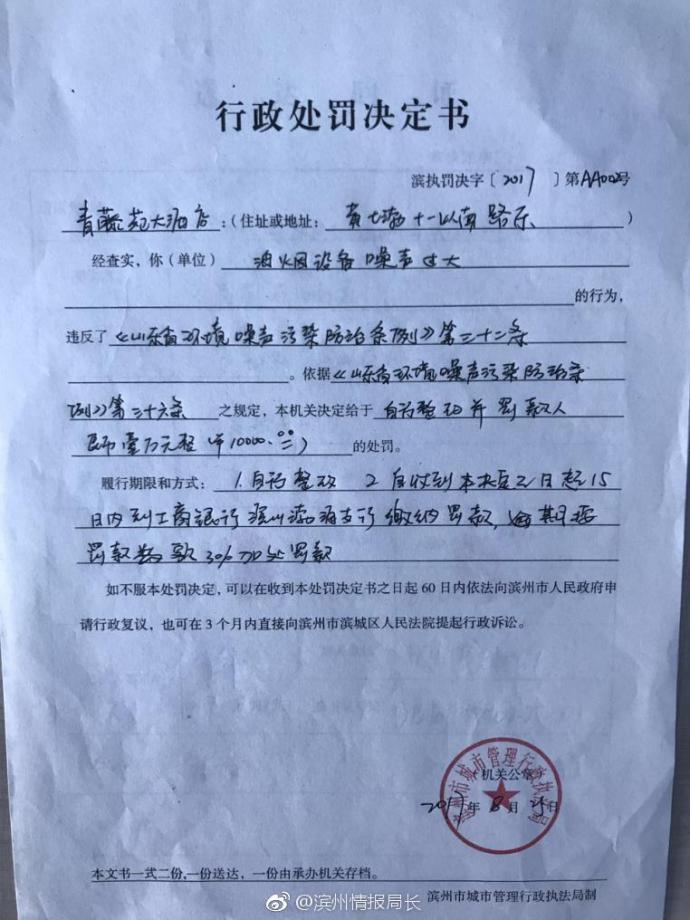 行政处罚决定书
滨执罚决字〔2017〕第AA002号
青藤苑大酒店:(住址或地址: 黄七渤十一以南路东)
经查实,你(单位) 油烟设备噪声过大
的行为,
违反了《山东省环境噪声污染防治条例》第三十二条
。依据《山东省环境噪声污染防治条
例》第三十六条 之规定,本机关决定给于 自行整改并罚款人
民币壹万元整(¥10000.00) 的处罚。
履行期限和方式: 1.自行整改 2 自收到本决定之日起15
日内到工商银行滨州渤海支行缴纳罚款,逾期按
罚款数额3%加处罚款
如不服本处罚决定,可以在收到本处罚决定书之日起60日内依法向滨州市人民政府申
请行政复议,也可在3个月内直接向滨州市滨城区人民法院提起行政诉讼。
滨州市城市管理行政执法局
(机关公章)
2017年8月25日
本文书一式二份,一份送达,一份由承办机关存档。
滨州市城市管理行政执法局制
@滨州情报局长